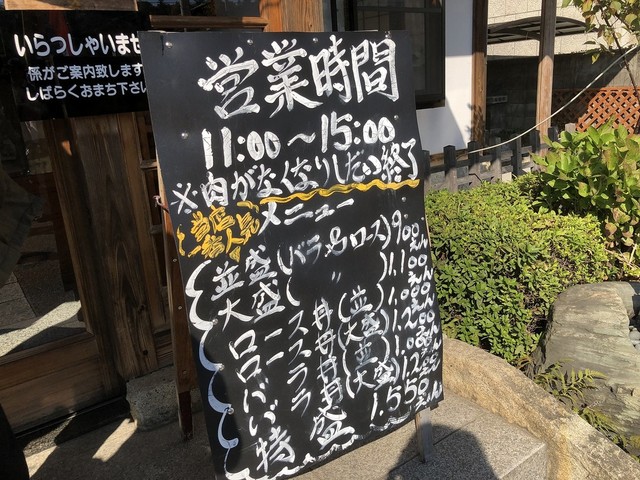 いらっしゃいませ
係がご案内致します
しばらくおまち下さい
営業時間
11:00〜15:00
※肉がなくなりしだい終了
当店
一番人気
メニュー
並盛(バラ&ロース)900えん
大盛( 〃 )1.100えん
ロース丼(並盛)1.000えん
ロース丼(大盛)1.200えん
バラ丼(並盛)1.000えん
バラ丼(大盛)1.200えん
特盛 1.550えん